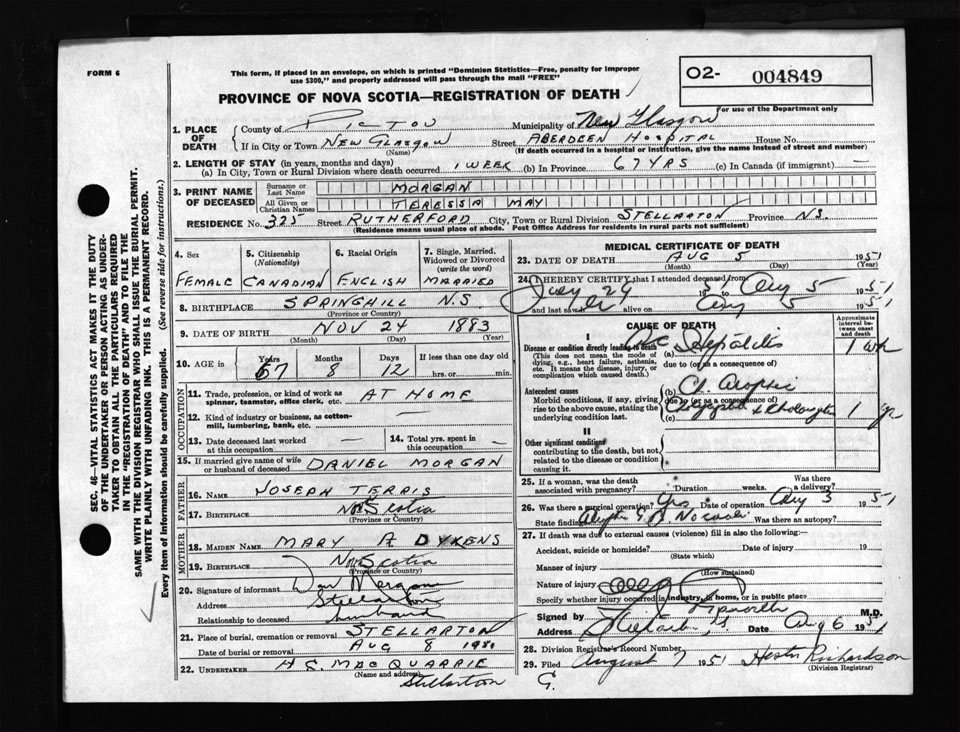 FORM 6
This form, if placed in an envelope, on which is printed "Dominion Statistics—Free, penalty for improper
use $300," and properly addressed will pass through the mail "FREE"
O2- 004849
PROVINCE OF NOVA SCOTIA—REGISTRATION OF DEATH
For use of the Department only
1. PLACE OF DEATH County of PICTOU Municipality of New Glasgow
If in City or Town NEW GLASGOW Street ABERDEEN HOSPITAL House No.
(Name) (If death occurred in a hospital or institution, give the name instead of street and number)
2. LENGTH OF STAY (in years, months and days)
(a) In City, Town or Rural Division where death occurred 1 WEEK (b) In Province 67 YRS (c) In Canada (if immigrant) —
3. PRINT NAME OF DECEASED Surname or Last Name MORGAN
All Given or Christian Names TERESSA MAY
RESIDENCE No. 325 Street RUTHERFORD City, Town or Rural Division STELLARTON Province N.S.
(Residence means usual place of abode. Post Office Address for residents in rural parts not sufficient)
SEC. 46—VITAL STATISTICS ACT MAKES IT THE DUTY
OF THE UNDERTAKER OR PERSON ACTING AS UNDER-
TAKER TO OBTAIN ALL THE PARTICULARS REQUIRED
IN THE "REGISTRATION OF DEATH" AND TO FILE THE
SAME WITH THE DIVISION REGISTRAR WHO SHALL ISSUE THE BURIAL PERMIT.
WRITE PLAINLY WITH UNFADING INK. THIS IS A PERMANENT RECORD.
Every item of Information should be carefully supplied. (See reverse side for instructions.)
4. Sex 5. Citizenship (Nationality) 6. Racial Origin 7. Single, Married, Widowed or Divorced (write the word)
FEMALE CANADIAN ENGLISH MARRIED
8. BIRTHPLACE SPRINGHILL N.S
(Province or Country)
9. DATE OF BIRTH NOV 24 1883
(Month) (Day) (Year)
10. AGE IN Years Months Days If less than one day old
67 8 12 hrs. or min.
OCCUPATION
11. Trade, profession, or kind of work as
spinner, teamster, office clerk, etc. AT HOME
12. Kind of industry or business, as cotton-
mill, lumbering, bank, etc.
13. Date deceased last worked
at this occupation —
14. Total yrs. spent in
this occupation —
15. If married give name of wife
or husband of deceased DANIEL MORGAN
FATHER
16. NAME JOSEPH TERRIS
17. BIRTHPLACE Nova Scotia
(Province or Country)
MOTHER
18. MAIDEN NAME MARY A DYKENS
19. BIRTHPLACE Nova Scotia
(Province or Country)
20. Signature of informant Dan Morgan
Address Stellarton
Relationship to deceased husband
21. Place of burial, cremation or removal STELLARTON
Date of burial or removal AUG 8 19
22. UNDERTAKER H S. MACQUARRIE
(Name and address)
Stellarton
MEDICAL CERTIFICATE OF DEATH
23. DATE OF DEATH AUG 5 1951
(Month) (Day) (Year)
24. I HEREBY CERTIFY that I attended deceased from
July 29 51 Aug 5 1951
and last saw her alive on Aug 5 1951
CAUSE OF DEATH
Approximate interval between onset and death
I
Disease or condition directly leading to death (a) Hepatitis 1 wk
(This does not mean the mode of
dying, e.g., heart failure, asthenia,
etc. It means the disease, injury, or
complication which caused death.)
due to (or as a consequence of)
Antecedent causes (b)
Morbid conditions, if any, giving
rise to the above cause, stating the
underlying condition last.
due to (or as a consequence of)
(c) 1 yr
II
Other significant conditions
contributing to the death, but not
related to the disease or condition
causing it.
25. If a woman, was the death
associated with pregnancy? Duration weeks. Was there a delivery?
26. Was there a surgical operation? Yes Date of operation Aug 3 1951
State findings Was there an autopsy?
27. If death was due to external causes (violence) fill in also the following:—
Accident, suicide or homicide? Date of injury 19
(State which)
Manner of injury
(How sustained)
Nature of injury
Specify whether injury occurred in industry, in home, or in public place
Signed by M.D.
Address Date Aug 6 1951
28. Division Registrar's Record Number
29. Filed August 7 1951 Hester Richardson
(Division Registrar)
G.